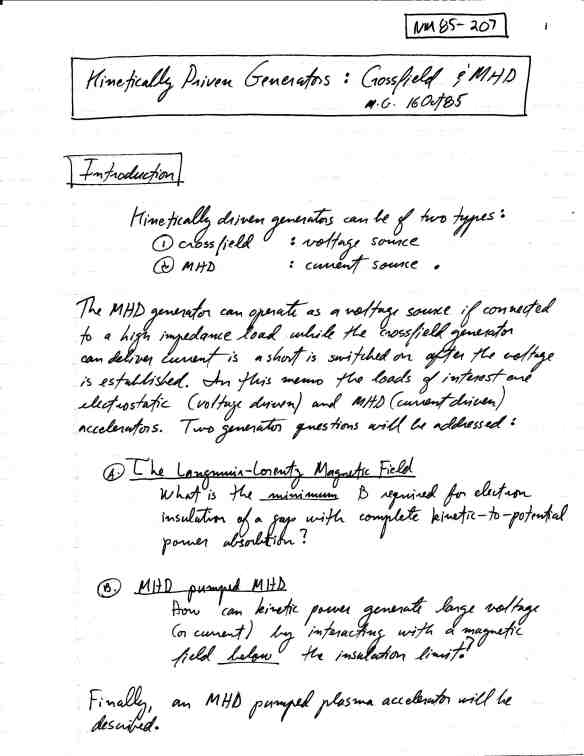 NM 85-207
1
Kinetically Driven Generators : Crossfield & MHD
M.G. 16 Oct 85
Introduction
Kinetically driven generators can be of two types:
① crossfield : voltage source
② MHD : current source .
The MHD generator can operate as a voltage source if connected
to a high impedance load while the crossfield generator
can deliver current is a short is switched on after the voltage
is established. In this memo the loads of interest are
electrostatic (voltage driven) and MHD (current driven)
accelerators. Two generator questions will be addressed:
Ⓐ The Langmuir-Lorentz Magnetic Field
What is the minimum B required for electron
insulation of a gap with complete kinetic-to-potential
power absorbtion?
Ⓑ. MHD pumped MHD
How can kinetic power generate large voltage
(or current) by interacting with a magnetic
field below the insulation limit?
Finally, an MHD pumped plasma accelerator will be
described.